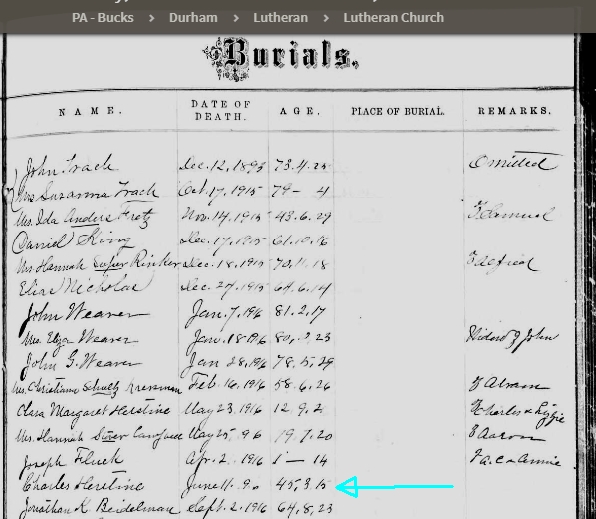 PA - Bucks > Durham > Lutheran > Lutheran Church
Burials.
NAME. DATE OF DEATH. AGE. PLACE OF BURIAL. REMARKS.
John Trach Dec. 12, 1893 73.4.25 Omitted
Mrs Suzanna Trach Oct. 17, 1915 79 – 4
Mrs. Ida Anders Fretz Nov. 14, 1915 43.6.29
Daniel King Dec. 17, 1915 61.10.16
Mrs Hannah Rinker Dec. 18, 1915 70.11.18 Alfred
Elias Nicholas Dec. 27, 1915 64.6.14
John Weaver Jan. 7, 1916 81.2.17
Mrs. Eliza Weaver Jan. 18 1916 80, .23 John
John G. Weaver Jan 28, 1916 78.5.29
Mrs. Christiana Schultz Feb. 16, 1916 58.6.26
Clara Margaret Herstine May 23, 1916 12.9.2 Charles & Lizzie
Mrs. Hannah May 25, 79.7.20 Aaron
Joseph Fluck Apr. 2, 1916 1 — 14 Annie
Charles Herstine June 11. 45.3.15
Jonathan K. Beidelman Sept. 2, 1916 64,8,23